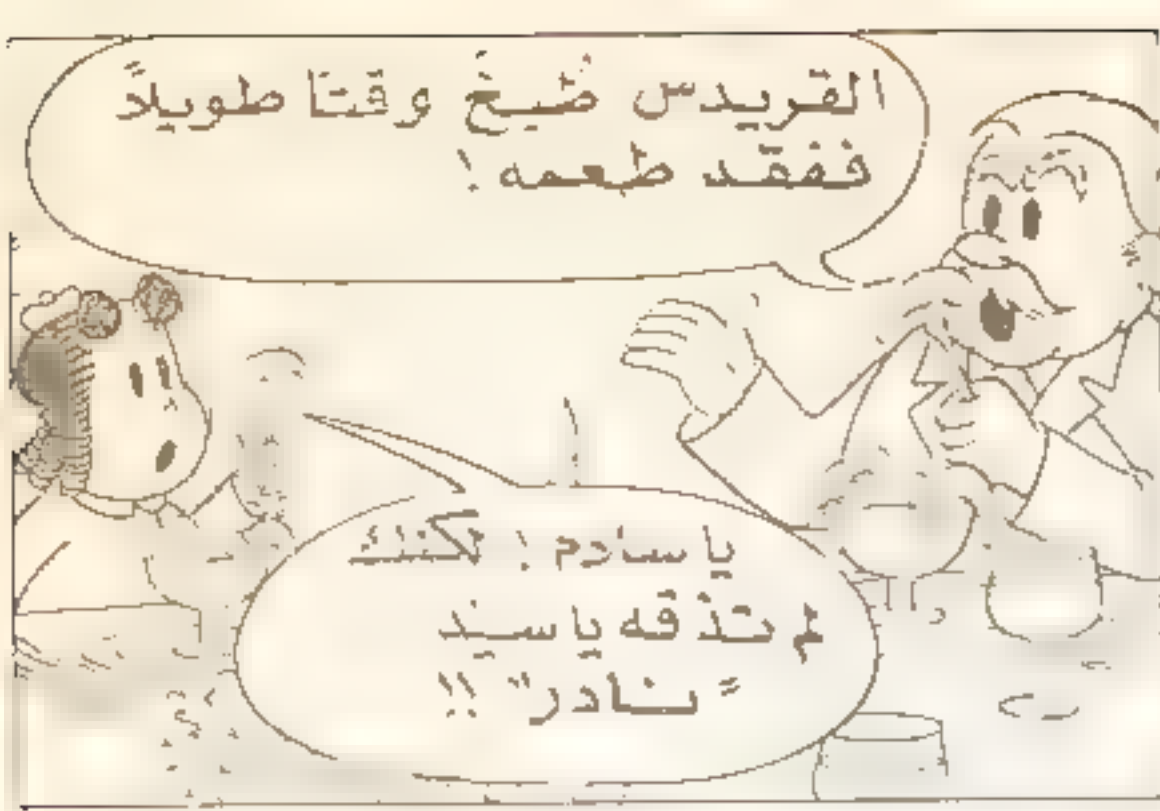 القريدس طُبِخَ وقتًا طويلاً
ففقد طعمه !
يا سلام ! لكنك
لم تذقه يا سيد
"نادر" !!